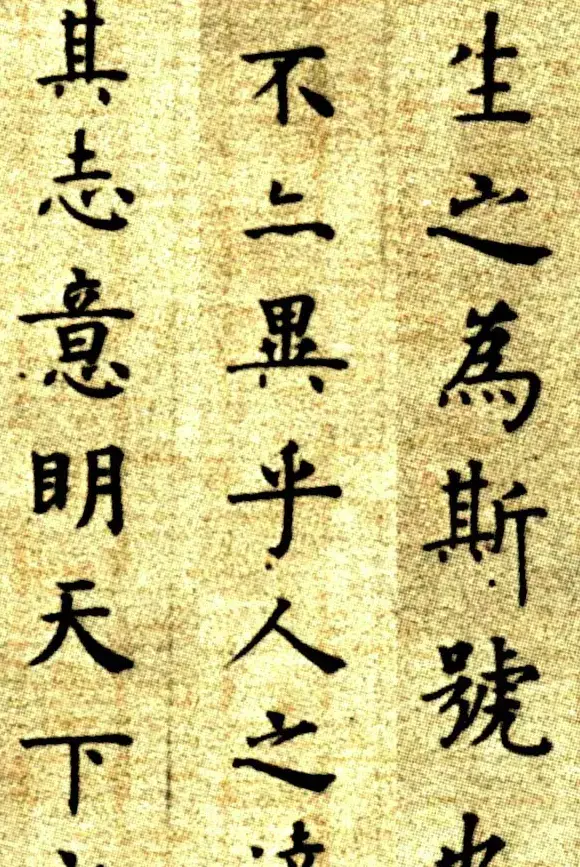 生之為斯號也
不亠異乎人之
其志意明天下